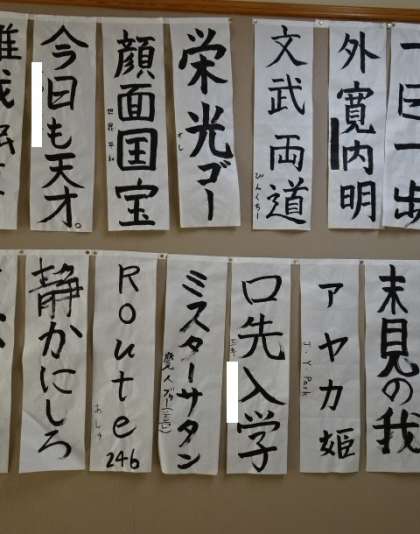 一日一歩
外寛内明
文武両道
びんくちー
栄光ゴー
顔面国宝
世界平和
今日も天才。
未見の我
アヤカ姫
J.Y Park
口先入学
ミスターサタン
Route 246
静かにしろ